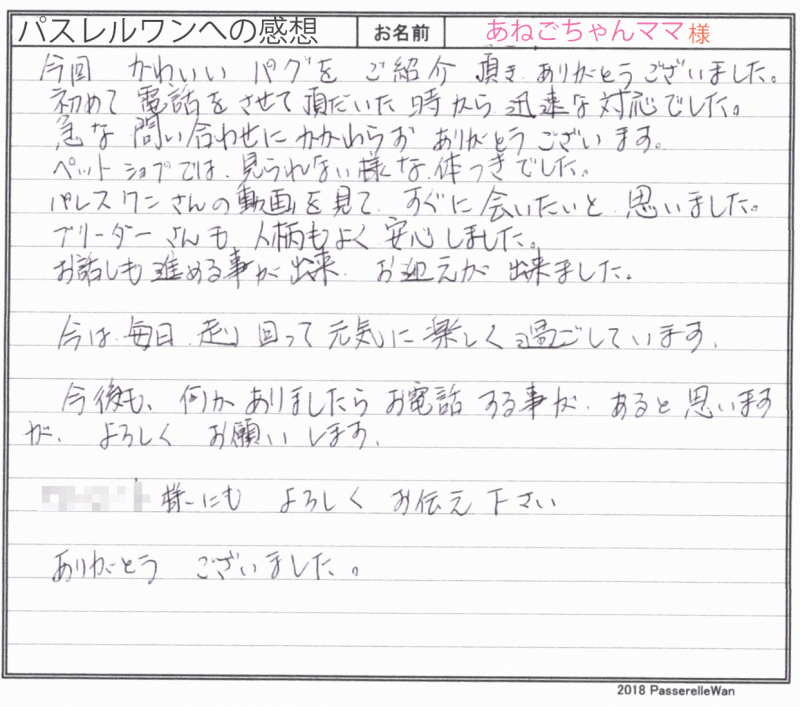 パスレルワンへの感想 お名前 あねごちゃんママ様
今回 かわいい パグを ご紹介 頂き ありがとうございました。
初めて 電話をさせて頂だいた 時から 迅速な対応でした。
急な 問い合わせにかかわらお ありがとうございます。
ペットショプでは、見られない様な、体つきでした。
パレスワンさんの動画を見て、すぐに会いたいと 思いました。
ブリーダーさんも、人柄もよく 安心しました。
お話しも進める事が出来、お迎えが 出来ました。
今は、毎日、走り回って元気に楽しく過ごしています。
今後も、何かありましたらお電話する事が、あると思います
が、よろしく お願いします。
様にも よろしく お伝え下さい
ありがとう ございました。
2018 PasserelleWan